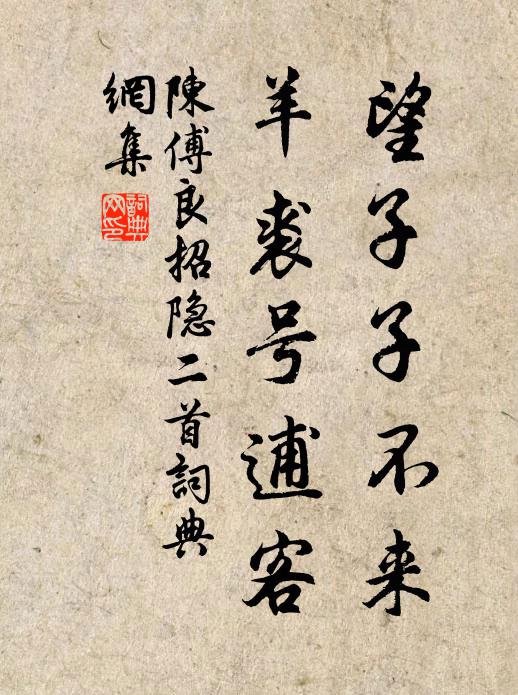 望子子不来
羊裘号逋客
陳傅良招隐二首詞典
網集
詞典網印